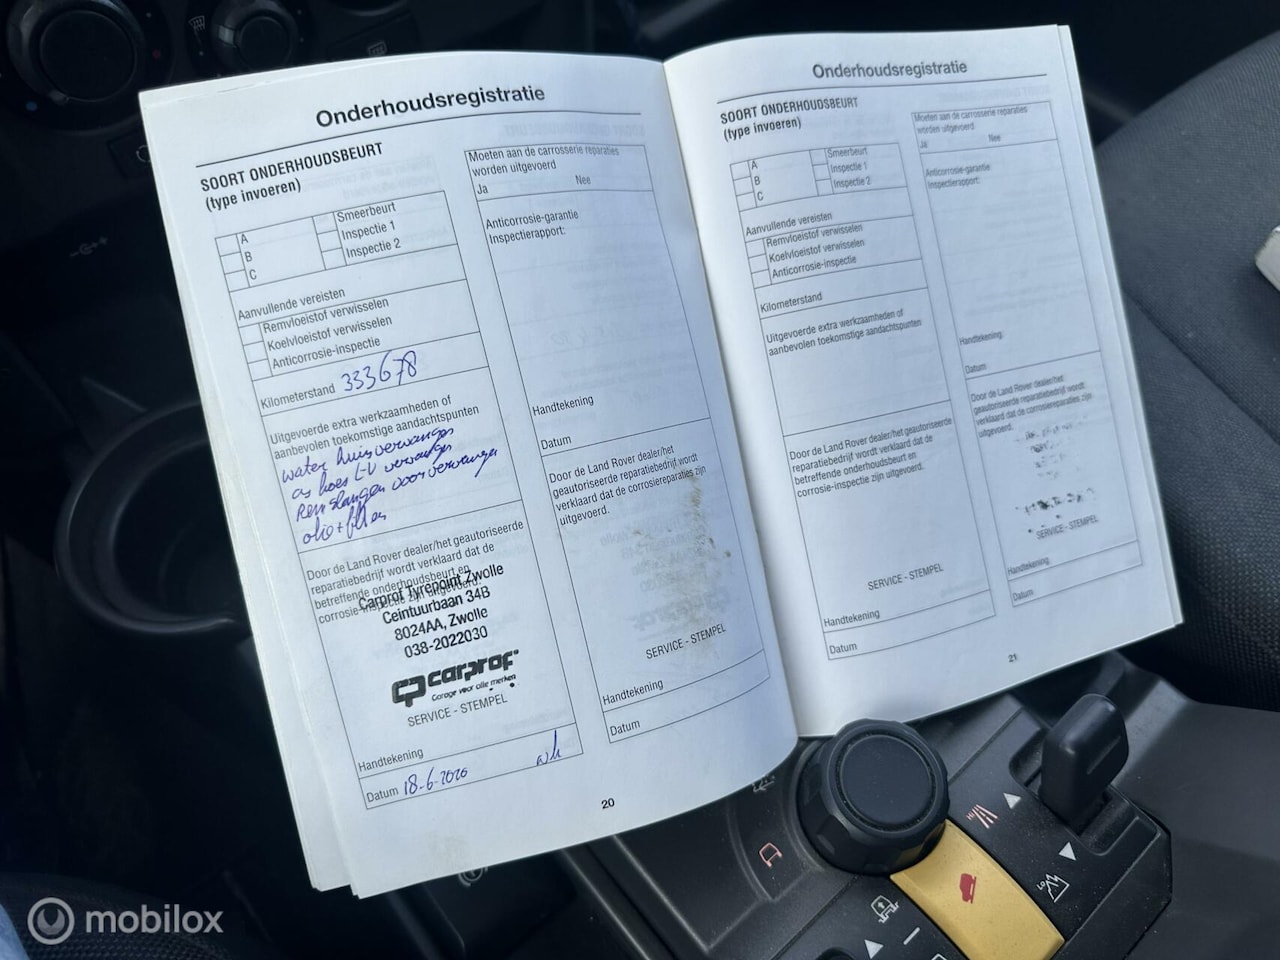 Onderhoudsregistratie
SOORT ONDERHOUDSBEURT
(type invoeren)
A
B
C
Smeerbeurt
Inspectie 1
Inspectie 2
Aanvullende vereisten
Remvloeistof verwisselen
Koelvloeistof verwisselen
Anticorrosie-inspectie
Kilometerstand 333678
Uitgevoerde extra werkzaamheden of
aanbevolen toekomstige aandachtspunten
water huis vervangen
as hoes L-V vervangen
Remslangen voor vervangen
olie + filter
Door de Land Rover dealer/het geautoriseerde
reparatiebedrijf wordt verklaard dat de
betreffende onderhoudsbeurt en
corrosie-inspectie zijn uitgevoerd.
Carprof Tyrepoint Zwolle
Ceintuurbaan 34B
8024AA, Zwolle
038-2022030
carprof
Garage voor alle merken
SERVICE - STEMPEL
Handtekening
Datum 18-6-2020
Moeten aan de carrosserie reparaties
worden uitgevoerd
Ja Nee
Anticorrosie-garantie
Inspectierapport:
Handtekening
Datum
Door de Land Rover dealer/het
geautoriseerde reparatiebedrijf wordt
verklaard dat de corrosiereparaties zijn
uitgevoerd.
SERVICE - STEMPEL
Handtekening
Datum
20
Onderhoudsregistratie
SOORT ONDERHOUDSBEURT
(type invoeren)
A
B
C
Smeerbeurt
Inspectie 1
Inspectie 2
Aanvullende vereisten
Remvloeistof verwisselen
Koelvloeistof verwisselen
Anticorrosie-inspectie
Kilometerstand
Uitgevoerde extra werkzaamheden of
aanbevolen toekomstige aandachtspunten
Door de Land Rover dealer/het geautoriseerde
reparatiebedrijf wordt verklaard dat de
betreffende onderhoudsbeurt en
corrosie-inspectie zijn uitgevoerd.
SERVICE - STEMPEL
Handtekening
Datum
Moeten aan de carrosserie reparaties
worden uitgevoerd
Ja Nee
Anticorrosie-garantie
Inspectierapport:
Handtekening:
Datum
Door de Land Rover dealer/het
geautoriseerde reparatiebedrijf wordt
verklaard dat de corrosiereparaties zijn
uitgevoerd.
SERVICE - STEMPEL
Handtekening
Datum
21
HI
LO
mobilox